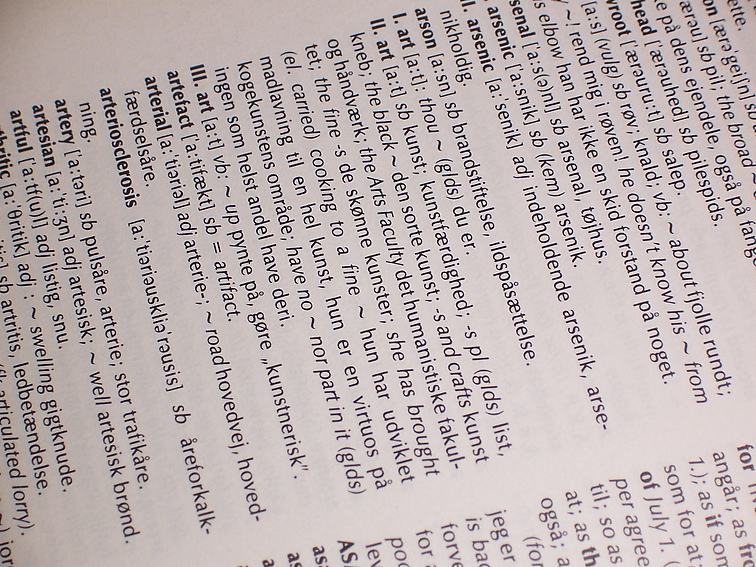 ette.
on [ærə'geiʃn]
ærəu] sb pil; the broad ~
e på dens ejendele, også på lang
head ['ærəuhed] sb pilespids.
wroot ['ærəuru:t] sb salep.
[a:s] (vulg) sb røv; knald; vb: ~ about fjolle rundt;
~! rend mig i røven! he doesn't know his ~ from
s elbow han har ikke en skid forstand på noget.
senal ['a:s(ə)nl] sb arsenal, tøjhus.
arsenic ['a:snik] sb (kem) arsenik.
II. arsenic [a:'senik] adj indeholdende arsenik, arse-
nikholdig.
arson [a:sn] sb brandstiftelse, ildspåsættelse.
I. art [a:t]: thou ~ (glds) du er.
II. art [a:t] sb kunst; kunstfærdighed; -s pl (glds) list,
kneb; the black ~ den sorte kunst; -s and crafts kunst
og håndværk; the Arts Faculty det humanistiske fakul-
tet; the fine -s de skønne kunster; she has brought
(el. carried) cooking to a fine ~ hun har udviklet
madlavning til en hel kunst, hun er en virtuos på
kogekunstens område; have no ~ nor part in it (glds)
ingen som helst andel have deri.
III. art [a:t] vb: ~ up pynte på, gøre „kunstnerisk".
artefact ['a:tifækt] sb = artifact.
arterial [a:'tiəriəl] adj arterie-; ~ road hovedvej, hoved-
færdselsåre.
arteriosclerosis [a:'tiəriəuskliə'rəusis] sb åreforkalk-
ning.
artery ['a:təri] sb pulsåre, arterie; stor trafikåre.
artesian [a:'ti:ʒn] adj artesisk; ~ well artesisk brønd.
artful ['a:tf(u)l] adj listig, snu.
thritic [a:'θritik] adj : ~ swelling gigtknude.
sb artritis, ledbetændelse.
articulated lorry).
for
angår; as fr
1.); as if som
som for at;
of July 1. (
per agree
til; so as
at; as th
også; a
(for
jeg er
is bac
forve
for a
poc
lev
AS
as
as
a